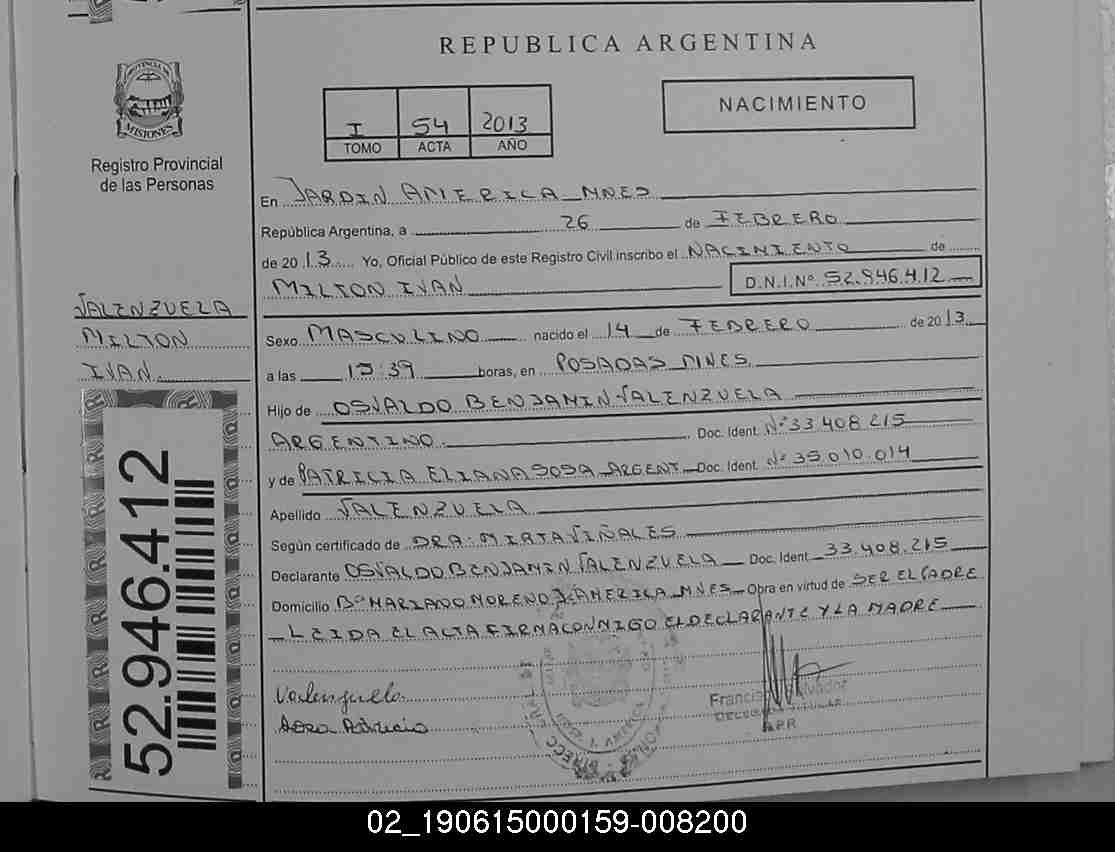 REPUBLICA ARGENTINA
PROVINCIA DE
MISIONES
Registro Provincial
de las Personas
I 54 2013
TOMO ACTA AÑO
NACIMIENTO
En JARDIN AMERICA MNES
República Argentina, a 26 de FEBRERO
de 2013 Yo, Oficial Público de este Registro Civil inscribo el NACIMIENTO de
MILTON IVAN D.N.I.Nº 52.946.412
VALENZUELA
MILTON
IVAN
Sexo MASCULINO nacido el 14 de FEBRERO de 2013
a las horas, en POSADAS MNES
Hijo de OSVALDO BENJAMIN VALENZUELA
ARGENTINO Doc. Ident. Nº 33.408.215
y de PATRICIA ELIANA SOSA ARGENT Doc. Ident. Nº 35.010.014
Apellido VALENZUELA
Según certificado de DRA: MIRTA VIÑALES
Declarante OSVALDO BENJAMIN VALENZUELA Doc. Ident. 33.408.215
Domicilio Bº MARIANO MORENO J. AMERICA MNES Obra en virtud de SER EL PADRE
LEIDA EL ACTA FIRMA CONMIGO EL DECLARANTE Y LA MADRE
52.946.412
Valenzuela
Sosa Patricia
DELEGADO TITULAR
02_190615000159-008200